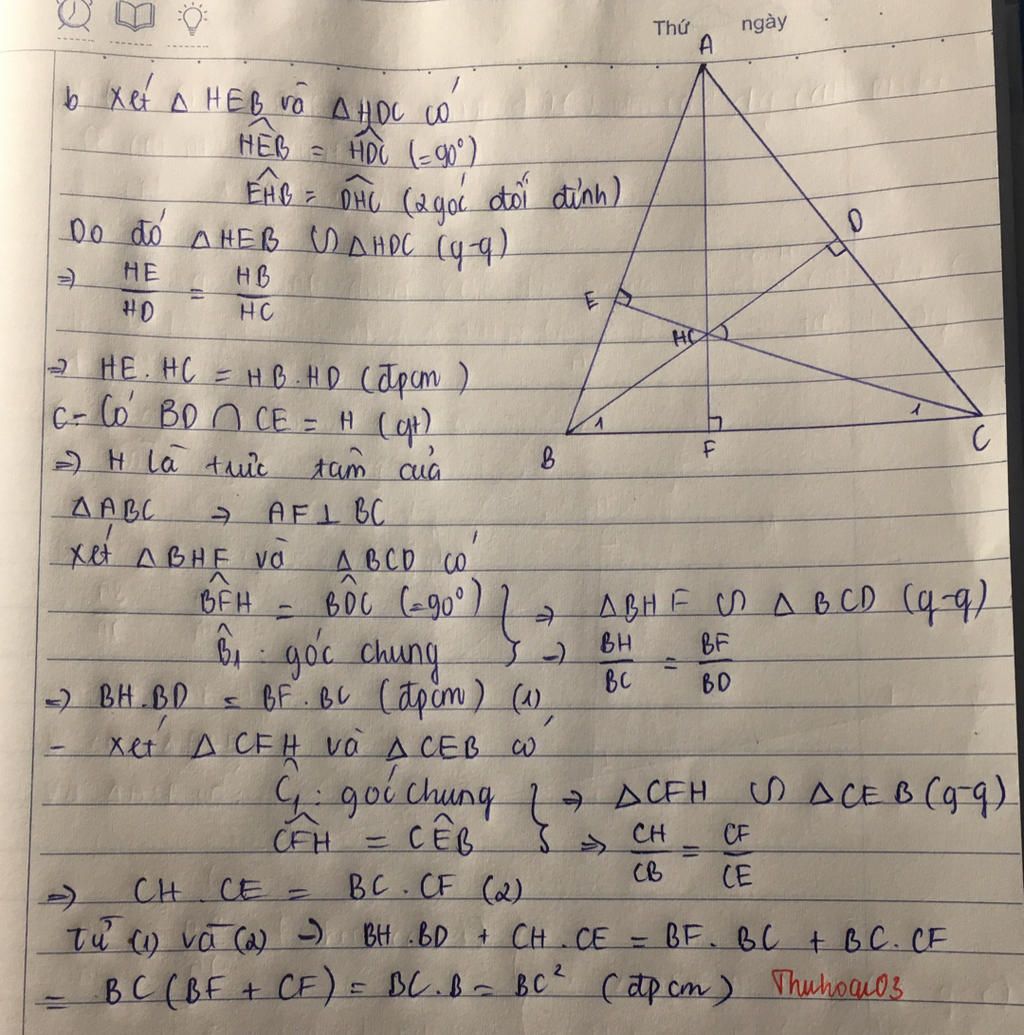 Thứ ngày
b Xét △ HEB và △ HDC có
HÊB = HD̂C (=90°)
EĤB = DĤC (2 góc đối đỉnh)
Do đó △HEB ∽ △HDC (g-g)
⇒ HE/HD = HB/HC
⇒ HE.HC = HB.HD (đpcm)
C- Có BD ∩ CE = H (gt)
⇒ H là trực tâm của
△ABC → AF⊥BC
Xét △BHF và △BCD có
BF̂H = BD̂C (=90°) } ⇒ △BHF ∽ △BCD (g-g)
B̂₁ : góc chung } → BH/BC = BF/BD
⇒ BH.BD = BF.BC (đpcm) (1)
- Xét △CFH và △CEB có
Ĉ₁ : góc chung } ⇒ △CFH ∽ △CEB (g-g)
CF̂H = CÊB } ⇒ CH/CB = CF/CE
⇒ CH.CE = BC.CF (2)
Từ (1) và (2) → BH.BD + CH.CE = BF.BC + BC.CF
= BC(BF + CF) = BC.B = BC² (đpcm)
A
D
E
HC
1
1
B
F
C